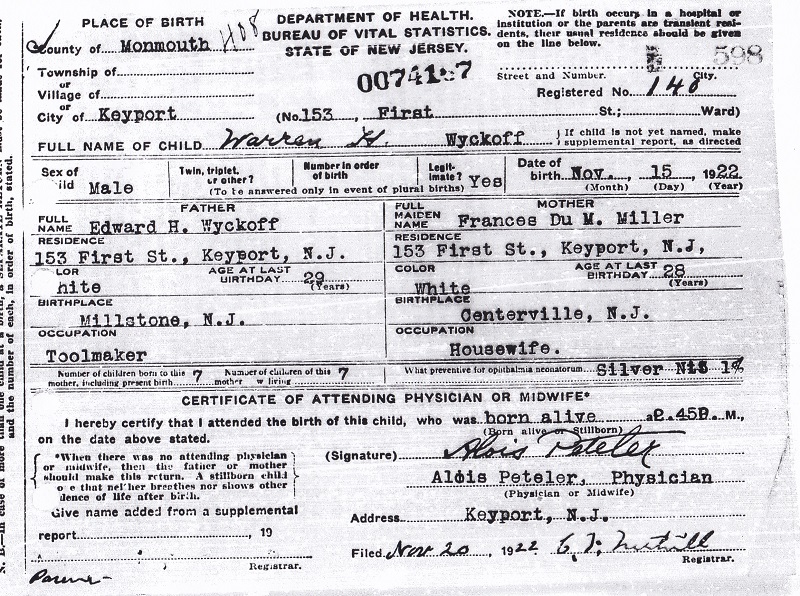 PLACE OF BIRTH
County of Monmouth
H08
DEPARTMENT OF HEALTH.
BUREAU OF VITAL STATISTICS.
STATE OF NEW JERSEY.
NOTE.—If birth occurs in a hospital or
institution or the parents are transient resi-
dents, their usual residence should be given
on the line below.
598
Township of
or
Village of
or
City of Keyport
Street and Number. City.
Registered No. 148
(No. 153, First St.; Ward)
FULL NAME OF CHILD Warren H. Wyckoff
If child is not yet named, make
supplemental report, as directed
Sex of
ild Male
Twin, triplet,
or other?
Number in order
of birth
(To be answered only in event of plural births)
Legit-
imate? Yes
Date of
birth Nov. 15, 1922
(Month) (Day) (Year)
FATHER
FULL
NAME Edward H. Wyckoff
RESIDENCE
153 First St., Keyport, N.J.
LOR
hite
AGE AT LAST
BIRTHDAY 29
(Years)
BIRTHPLACE
Millstone, N.J.
OCCUPATION
Toolmaker
MOTHER
FULL
MAIDEN
NAME Frances Du M. Miller
RESIDENCE
153 First St., Keyport, N.J,
COLOR
White
AGE AT LAST
BIRTHDAY 28
(Years)
BIRTHPLACE
Centerville, N.J.
OCCUPATION
Housewife.
Number of children born to this
mother, including present birth 7
Number of children of this
mother w living 7
What preventive for ophthalmia neonatorum Silver Nit 1%
CERTIFICATE OF ATTENDING PHYSICIAN OR MIDWIFE*
I hereby certify that I attended the birth of this child, who was born alive a 2.45P. M.,
(Born alive or Stillborn)
on the date above stated.
*When there was no attending physician
or midwife, then the father or mother
should make this return. A stillborn child
o e that neither breathes nor shows other
dence of life after birth.
(Signature) Alois Peteler
Alois Peteler, Physician
(Physician or Midwife)
Give name added from a supplemental
report, 19
Registrar.
Address Keyport, N.J.
Filed Nov 20, 1922
Registrar.
N. B.—In case of more
and the number of each, in order of birth, stated.